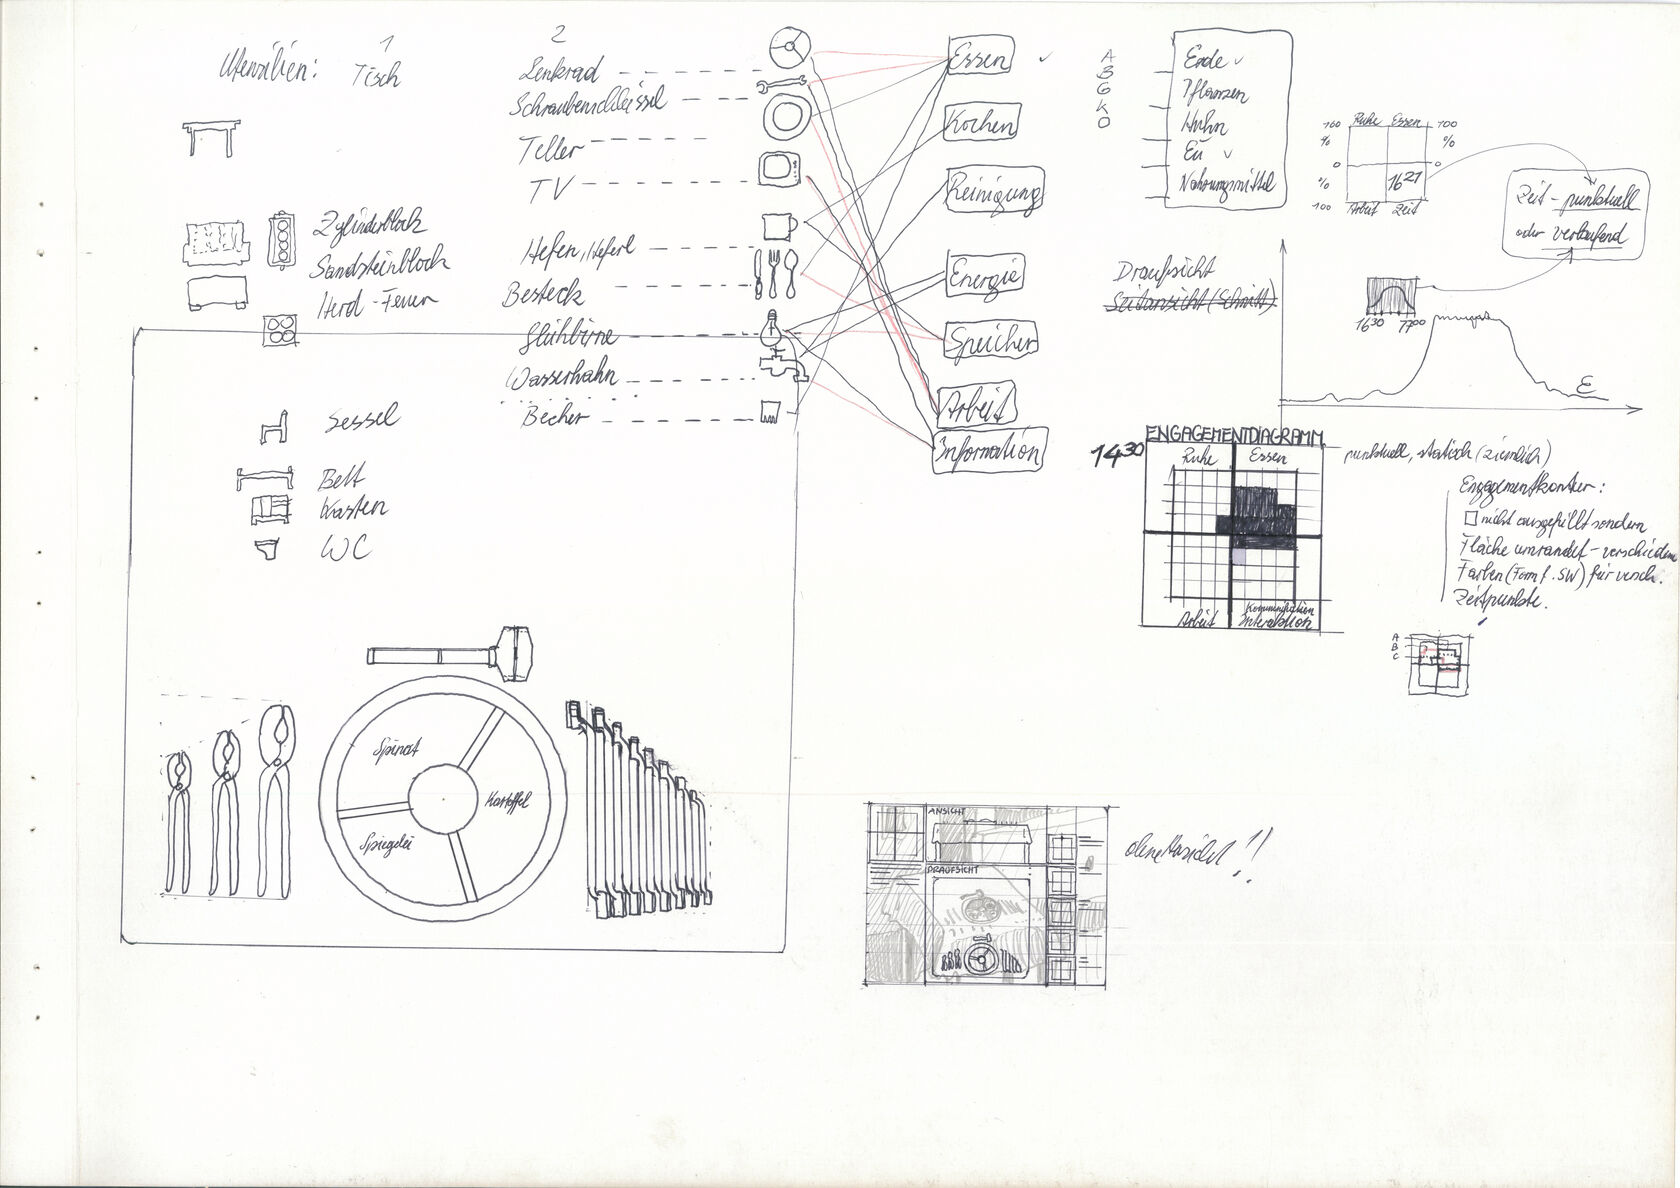 Utensilien:
1
Tisch
2
Lenkrad
Schraubenschlüssel
Teller
TV
Zylinderblock
Sandsteinblock
Herd-Feuer
Hefen, Heferl
Besteck
Glühbirne
Wasserhahn
Becher
Sessel
Bett
Kasten
WC
Essen
Kochen
Reinigung
Energie
Speicher
Arbeit
Information
A
B
G
K
O
Erde
Pflanzen
Huhn
Ei
Nahrungsmittel
Ruhe Essen
100 100
% %
0 0
%
100
16 27
Arbeit Zeit
Zeit - punktuell
oder verlaufend
Draufsicht
Seitansicht (Schnitt)
16 30 17 00
E
ENGAGEMENTDIAGRAMM
14 30
Ruhe Essen
Arbeit Kommunikation
Interaktion
punktuell, statisch (ziemlich)
Engagementkontur:
nicht ausgefüllt sondern
Fläche umrandet - verschiedene
Farben (Form f. SW) für versch.
Zeitpunkte.
A
B
C
Spinat
Kartoffel
Spiegelei
ANSICHT
DRAUFSICHT
ohne Ansicht!!